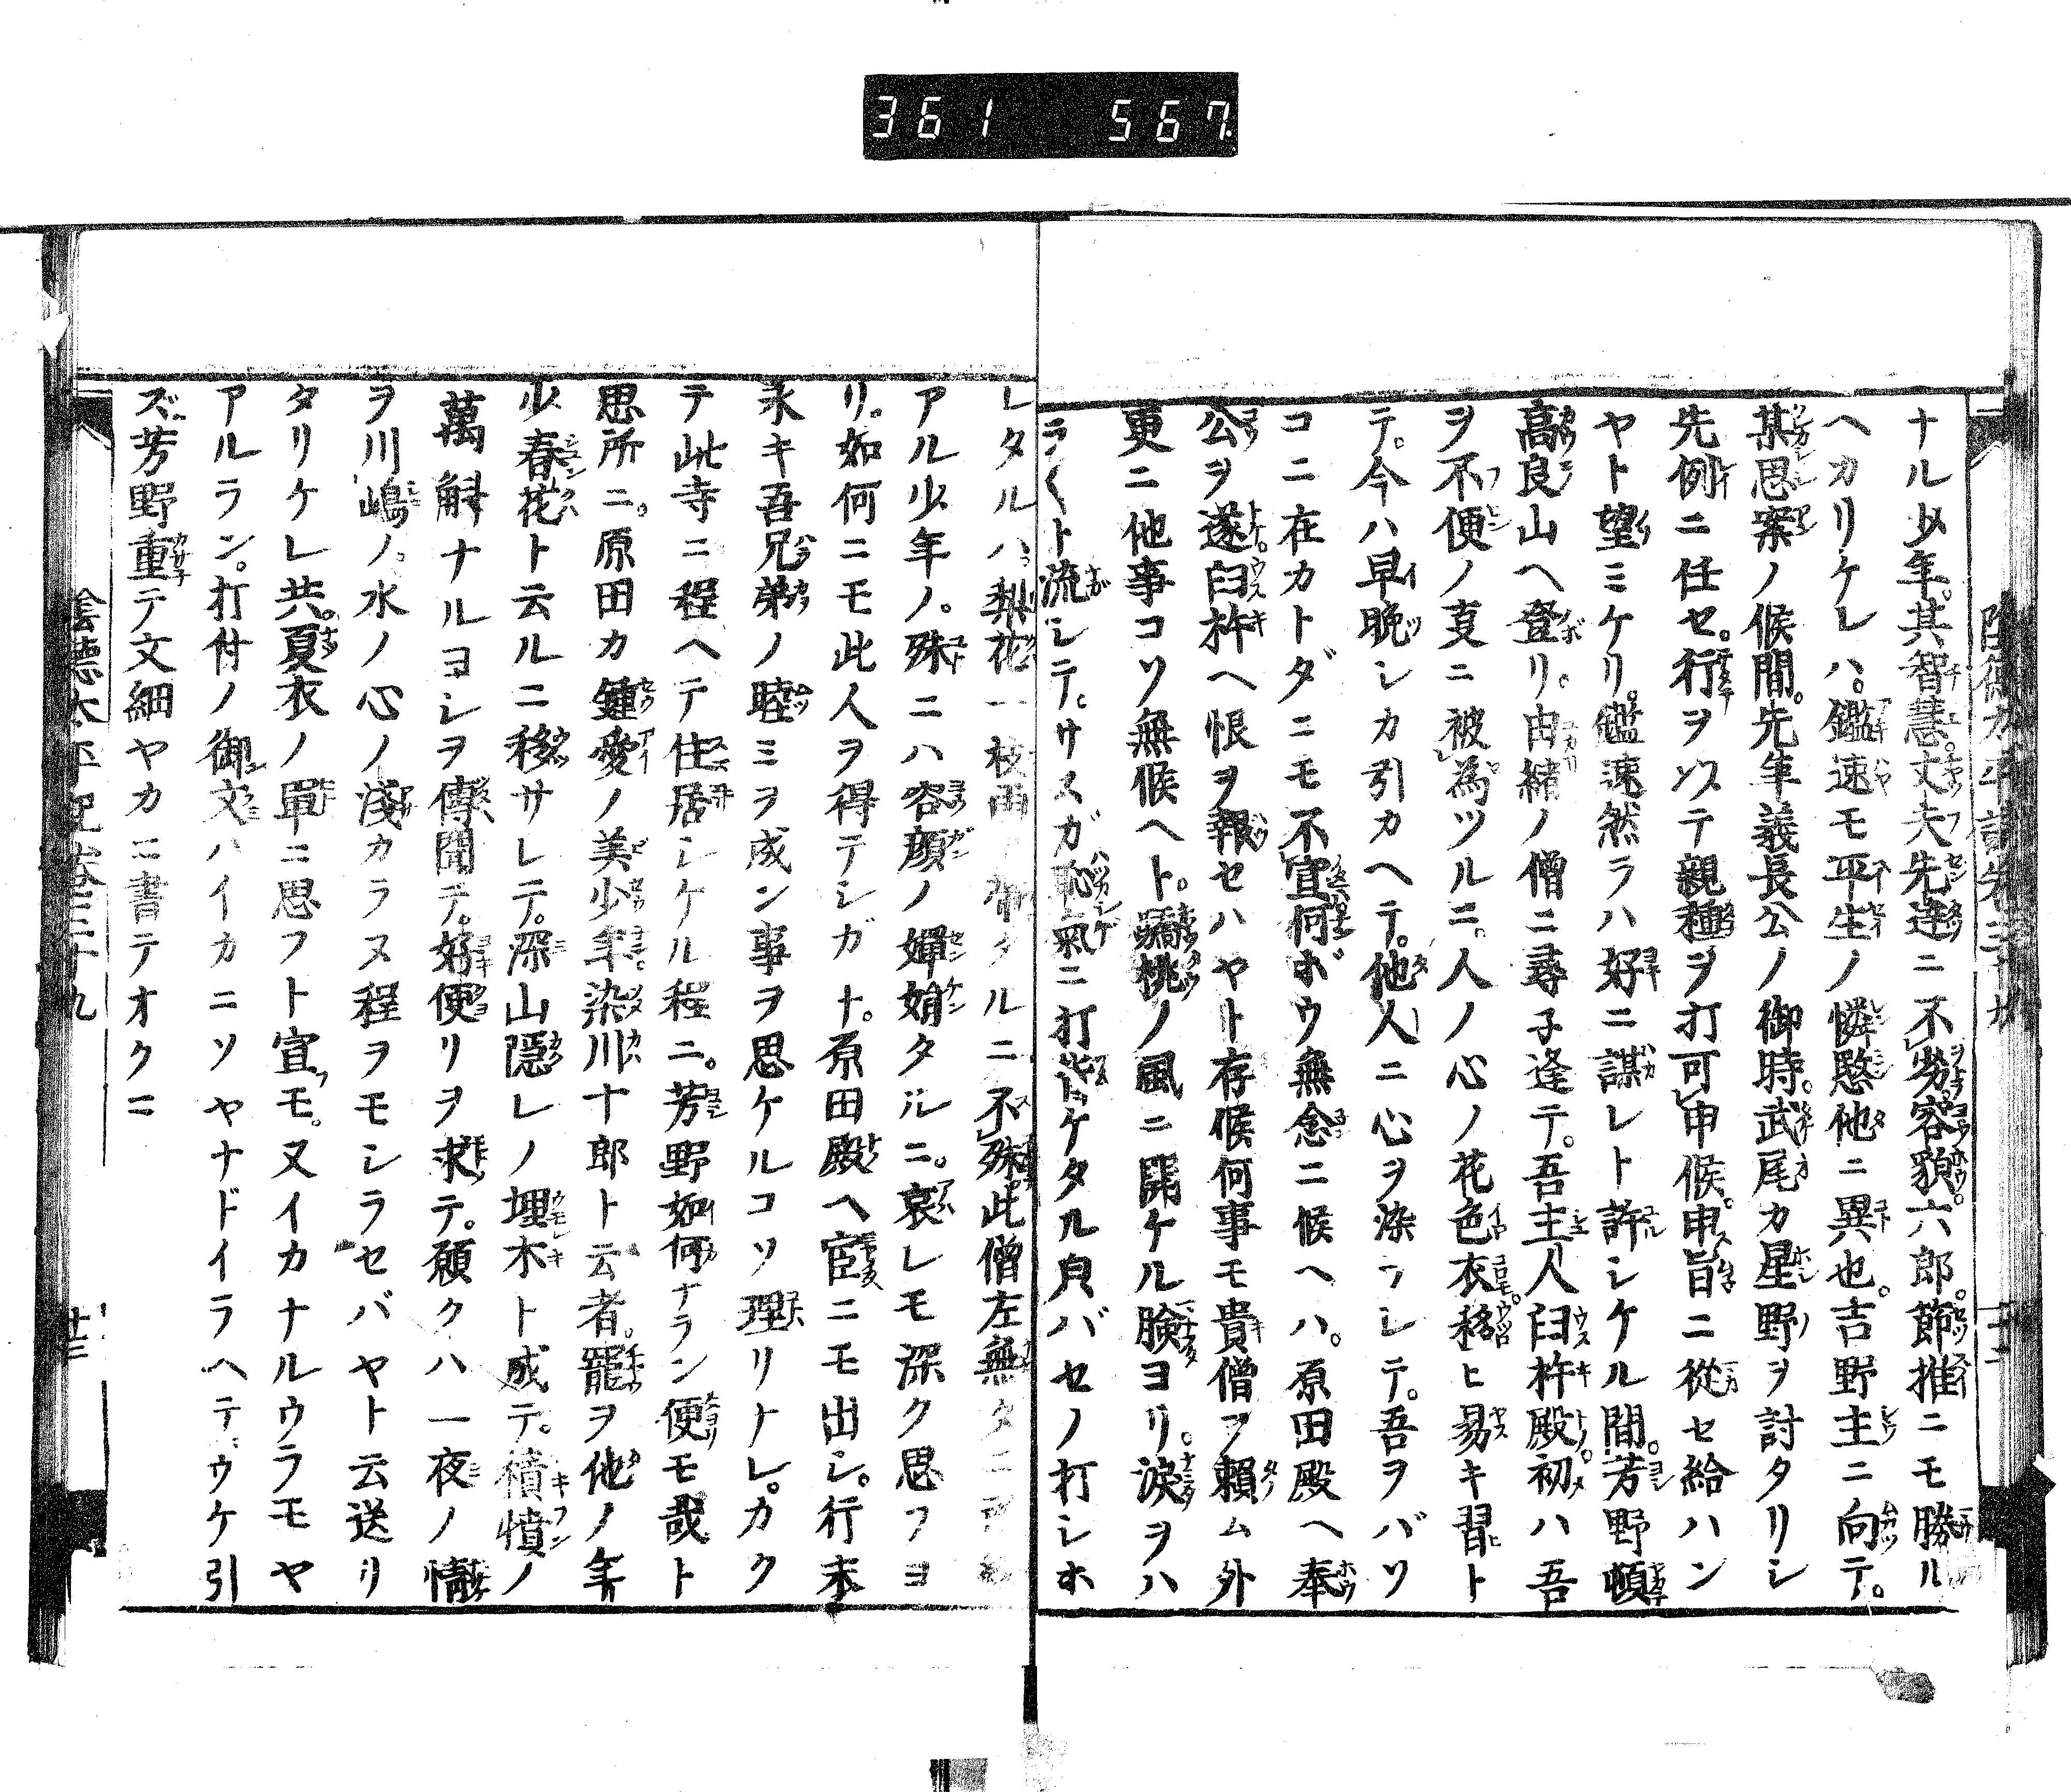 361 567
ナル少年。其智慧。丈夫先達ニ不劣。容貌。六郎。節推ニモ勝ル
ヘカリケレハ。鑑速モ平生ノ憐愍他ニ異也。吉野主ニ向テ。
某思案ノ候間。先年義長公ノ御時。武尾カ星野ヲ討タリシ
先例ニ任セ。行ヲ以テ親種ヲ打可申候。申旨ニ從セ給ハン
ヤト望ミケリ。鑑速然ラハ好ニ謀レト許シケル間。芳野頓
高良山ヘ登リ。由緒ノ僧ニ尋子逢テ。吾主人臼杵殿初ハ吾
ヲ不便ノ叓ニ被為ツルニ。人ノ心ノ花色衣移ヒ易キ習ト
テ。今ハ早晩シカ引カヘテ。他人ニ心ヲ染ラシテ。吾ヲバソ
コニ在カトダニモ不宣何ボウ無念ニ候ヘハ。原田殿ヘ奉
公ヲ遂臼杵ヘ恨ヲ報セハヤト存候何事モ貴僧ヲ賴ム外
更ニ他事コソ無候ヘト。桃ノ風ニ開ケル臉ヨリ。淚ヲハ
ラ〱ト流シテ。サスガ恥氣ニ打シホ
レタルハ梨花一枝雨ルニ不殊此僧左無タニ
アル少年ノ。殊ニハ容顔ノ嬋娟タルニ。哀レモ深ク思フヨ
リ。如何ニモ此人ヲ得テシガナ。原田殿ヘ宦ニモ出シ。行末
永キ吾兄弟ノ睦ミヲ成ン事ヲ思ケルコソ理リナレ。カク
テ此寺ニ程ヘテ住居シケル程ニ。芳野如何ナラン便モ哉ト
思所ニ。原田カ鍾愛ノ美少年染川十郎ト云者。寵ヲ他ノ年
少春花ト云ルニ移サレテ。深山隱レノ埋木ト成テ。積憤ノ
萬斛ナルヨシヲ傳聞テ。好便リヲ求テ。願クハ一夜ノ情
ヲ川嶋ノ。水ノ心ノ淺カラヌ程ヲモシラセバヤト云送リ
タリケレ共。夏衣ノ單ニ思フト宣フモ。又イカナルウラモヤ
アルラン。打付ノ御文ハイカニソヤナドイラヘテ。ウケ引
ズ。芳野重テ文細ヤカニ書テオクニ
陰德太平記卷三十九
廿三